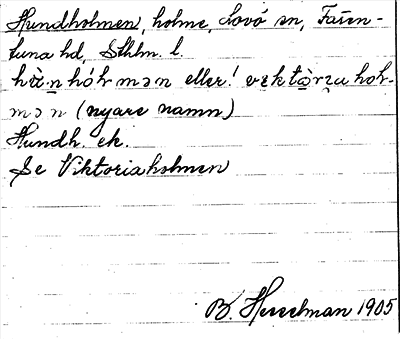 Hundholmen, holme, Lovö sn, Fären-
tuna hd, Sthlm. l.
hɯ̀nhól̥mən eller! vɛktòrɩ̨ahol-
mən (nyare namn)
Hundh. ek.
Se Viktoriaholmen
B. Hesselman 1905